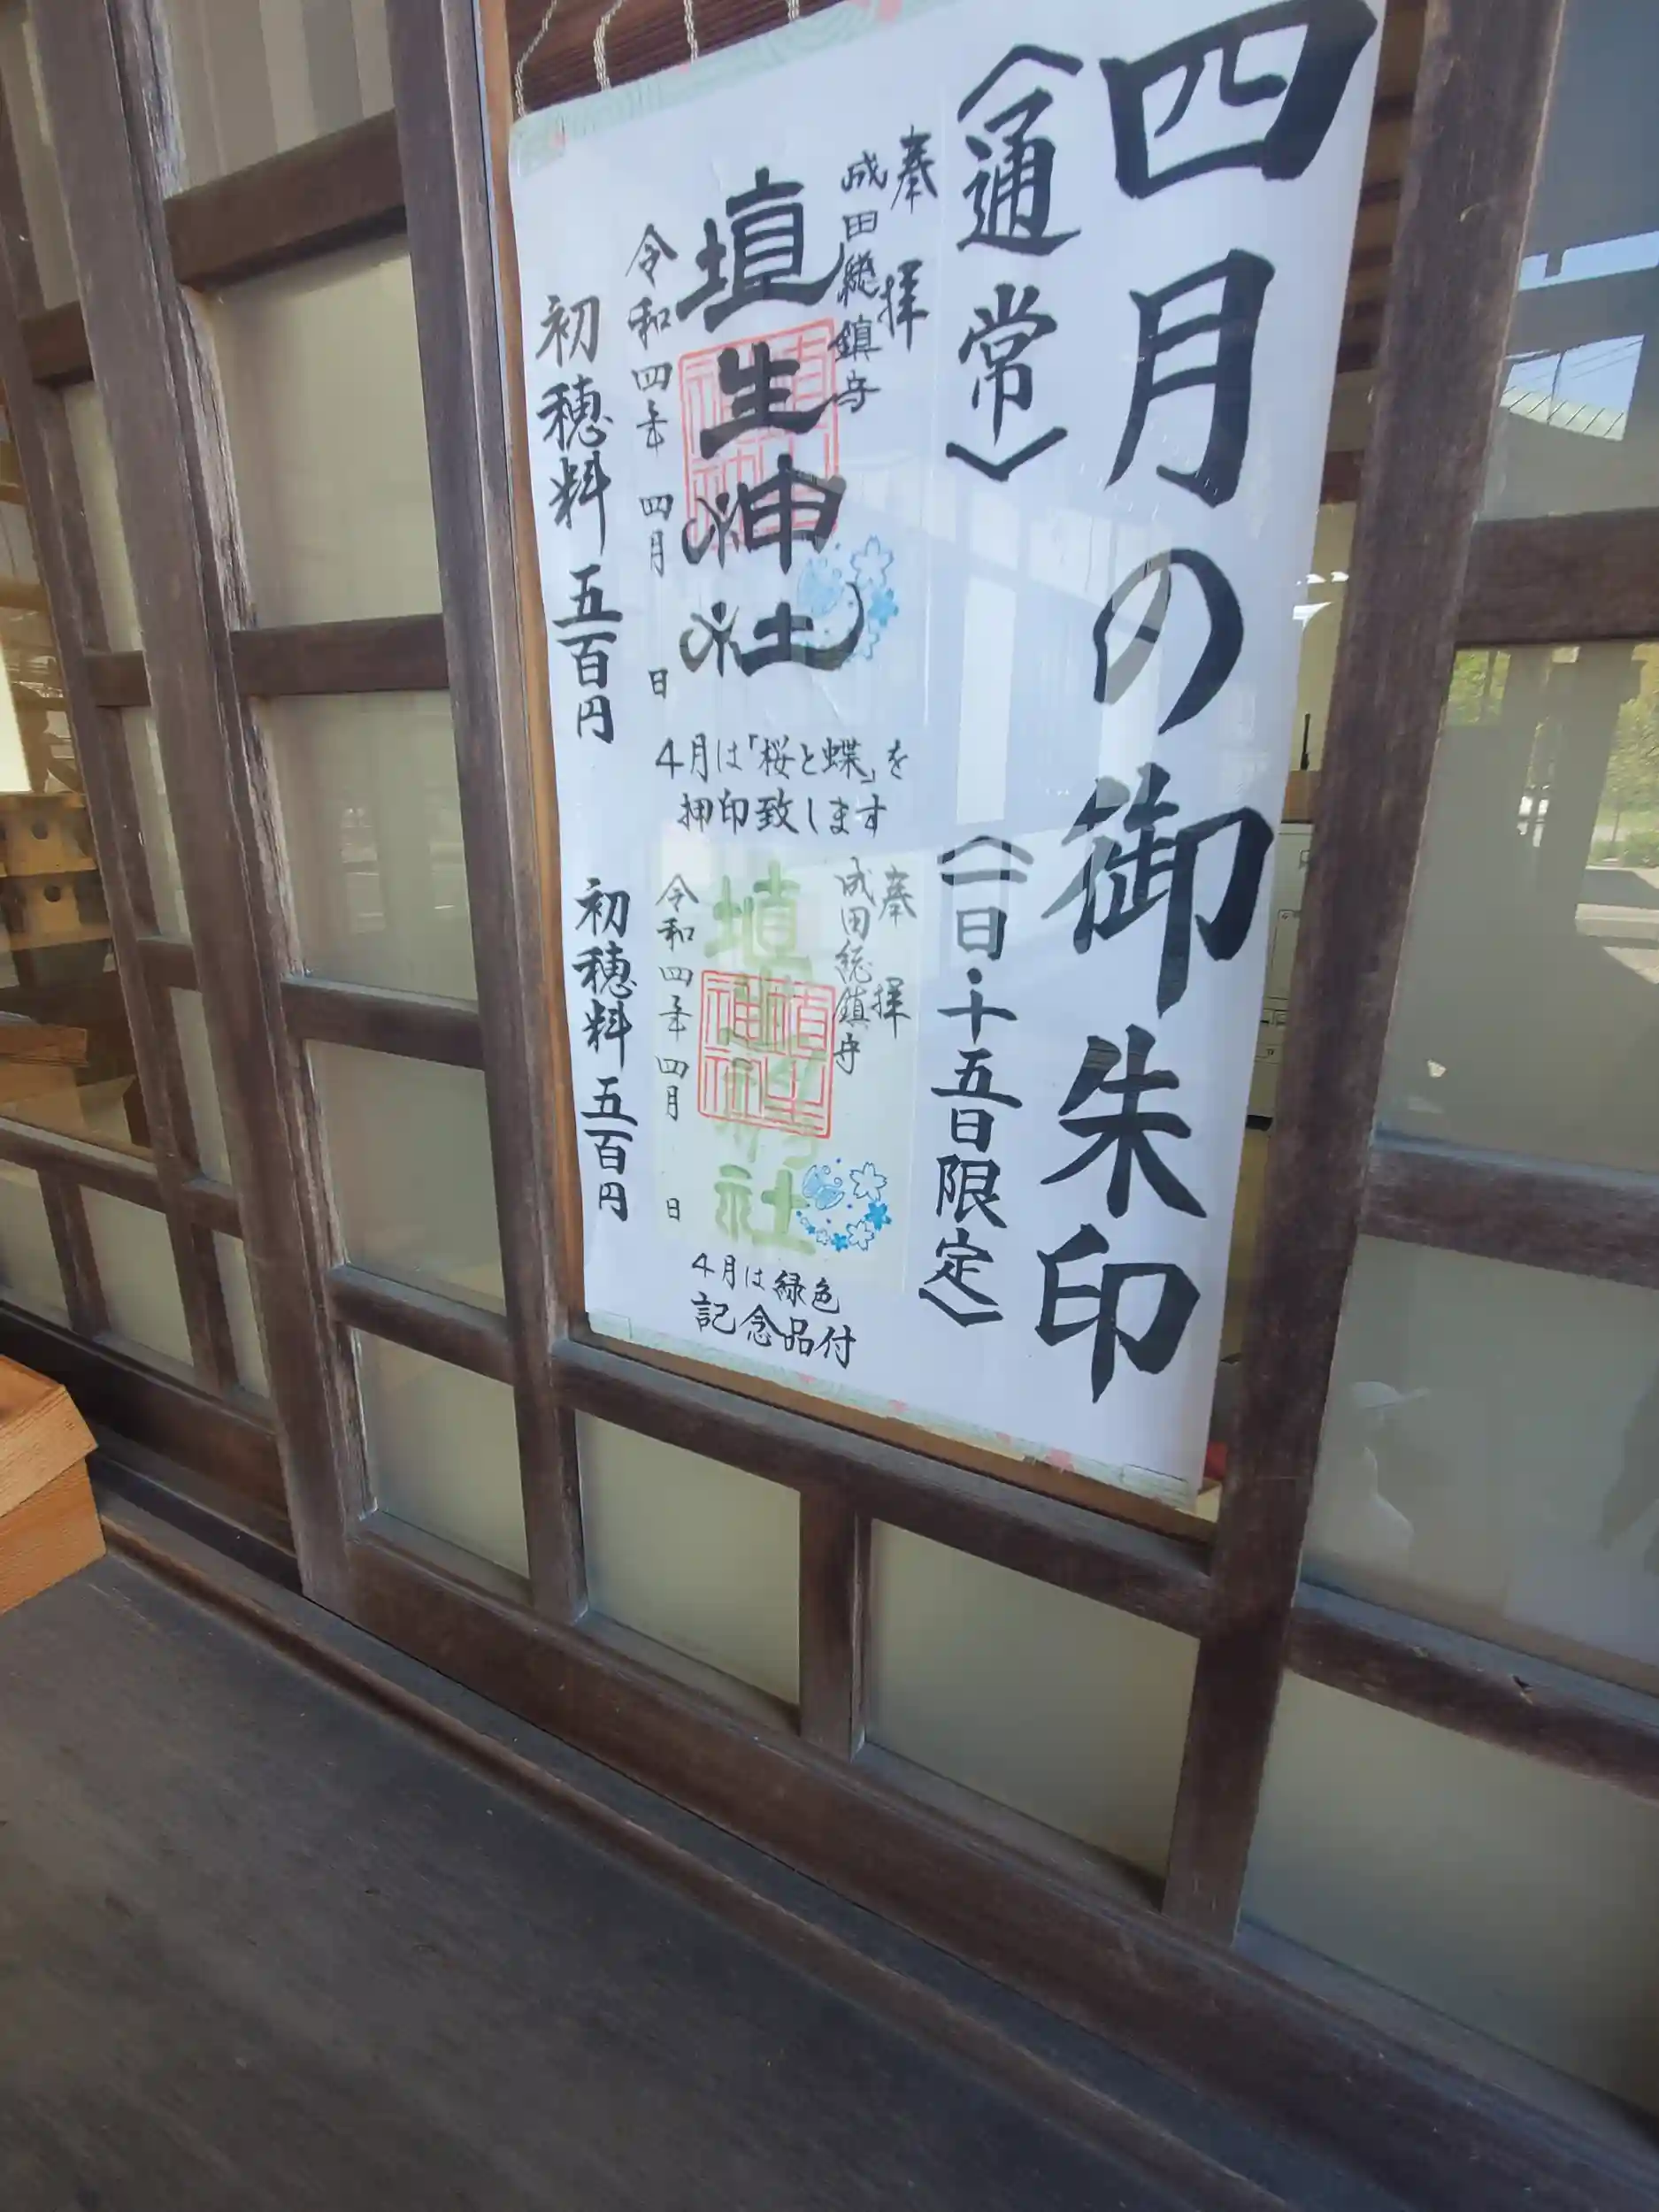 四月の御朱印
〈通常〉
奉拝
成田総鎮守
埴生神社
令和四年 四月 日
初穂料 五百円
4月は「桜と蝶」を
押印致します
〈一日・十五日限定〉
奉拝
成田総鎮守
埴生神社
令和四年 四月 日
初穂料 五百円
4月は緑色
記念品付